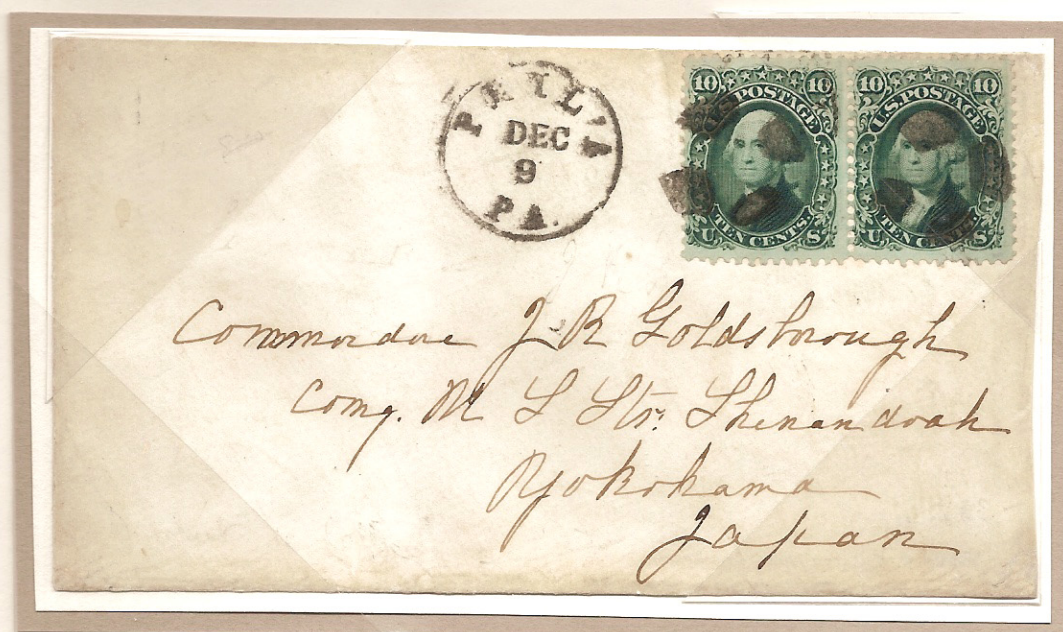 PHIL'A
DEC
9
PA.
10 10
U.S. POSTAGE
TEN CENTS.
U S
10 10
U.S. POSTAGE
TEN CENTS.
U S
Commordore J R Goldsborough
Comg. U S Str. Shenandoah
Yokohama
Japan